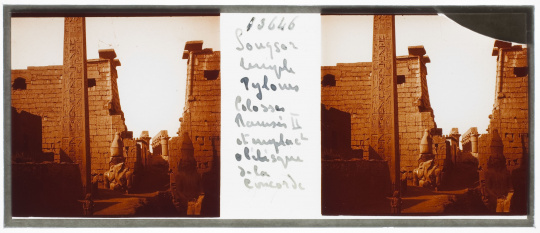 13646
Louqsor
temple
Pylones
Colosses
Ramsès II
et emplact
obélisque
de la
Concorde